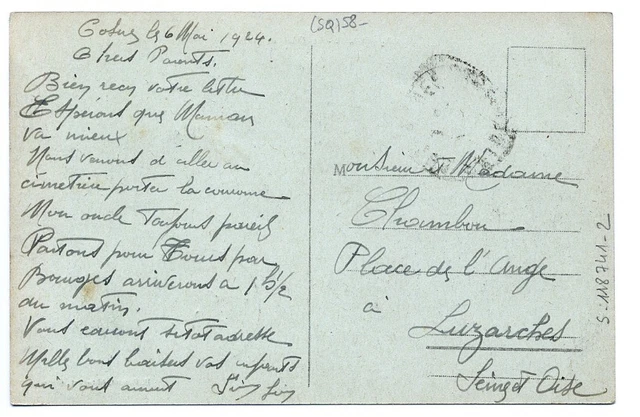 Cosne le 6 Mai 1924.
Chers Parents.
Bien reçu votre lettre
Espérons que Maman
va mieux
Nous venons d'aller au
cimetière porter la couronne
Mon oncle toujours pareil
Partons pour Tours par
Bourges arriverons à 1 h 1/2
du matin.
Vous sitot adresse
Mille bons baisers vos enfants
qui vous aiment
(SQ) 58-
Monsieur et Madame
Chambon
Place de l'Ange
à
Luzarches
Seine et Oise
S-118741-2